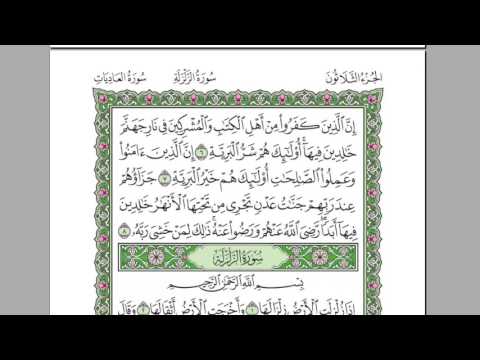 الجزء الثلاثون سورة الزلزلة سورة العاديات
إِنَّ الَّذِينَ كَفَرُوا مِنْ أَهْلِ الْكِتَٰبِ وَالْمُشْرِكِينَ فِي نَارِ جَهَنَّمَ
خَٰلِدِينَ فِيهَا أُولَٰئِكَ هُمْ شَرُّ الْبَرِيَّةِ ٦ إِنَّ الَّذِينَ ءَامَنُوا
وَعَمِلُوا الصَّٰلِحَٰتِ أُولَٰئِكَ هُمْ خَيْرُ الْبَرِيَّةِ ٧ جَزَاؤُهُمْ
عِندَ رَبِّهِمْ جَنَّٰتُ عَدْنٍ تَجْرِي مِن تَحْتِهَا الْأَنْهَٰرُ خَٰلِدِينَ
فِيهَا أَبَدًا رَّضِيَ اللَّهُ عَنْهُمْ وَرَضُوا عَنْهُ ذَٰلِكَ لِمَنْ خَشِيَ رَبَّهُ ٨
سورة الزلزلة
بِسْمِ اللَّهِ الرَّحْمَٰنِ الرَّحِيمِ
إِذَا زُلْزِلَتِ الْأَرْضُ زِلْزَالَهَا ١ وَأَخْرَجَتِ الْأَرْضُ أَثْقَالَهَا ٢ وَقَالَ